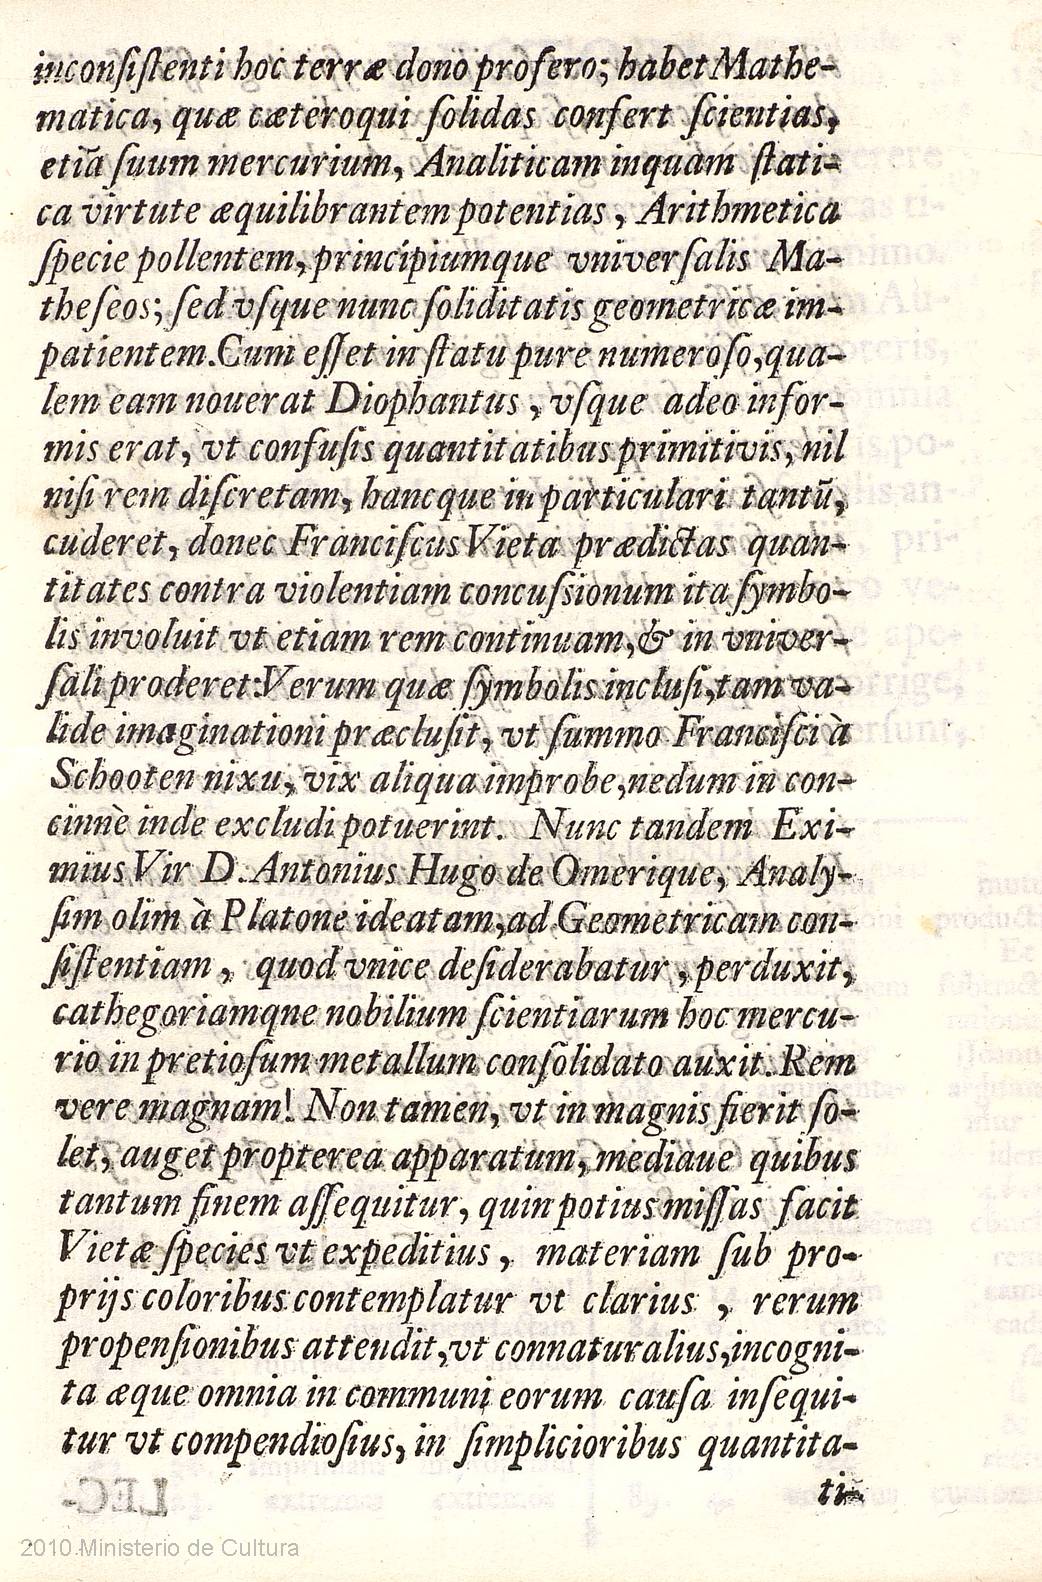 inconſiſtenti hoc terræ dono profero; habet Mathe-
matica, quæ cæteroqui ſolidas confert ſcientias,
etiã ſuum mercurium, Analiticam inquam ſtati-
ca virtute æquilibrantem potentias, Arithmetica
ſpecie pollentem, principiumque vniverſalis Ma-
theſeos; ſed vſque nunc ſoliditatis geometricæ im-
patientem. Cum eſſet in ſtatu pure numeroſo, qua-
lem eam nouerat Diophantus, vſque adeo infor-
mis erat, vt confuſis quantitatibus primitivis, nil
niſi rem diſcretam, hancque in particulari tantũ,
cuderet, donec Franciſcus Vieta prædictas quan-
titates contra violentiam concuſsionum ita ſymbo-
lis involuit vt etiam rem continuam, & in vniver-
ſali proderet: Verum quæ ſymbolis incluſi, tam va-
lide imaginationi præcluſit, vt ſummo Franciſci à
Schooten nixu, vix aliqua improbe, nedum in con-
cinnè inde excludi potuerint. Nunc tandem Exi-
mius Vir D. Antonius Hugo de Omerique, Analy-
ſim olim à Platone ideatam, ad Geometricam con-
ſiſtentiam, quod vnice deſiderabatur, perduxit,
cathegoriamqne nobilium ſcientiarum hoc mercu-
rio in pretioſum metallum conſolidato auxit. Rem
vere magnam! Non tamen, vt in magnis fierit ſo-
let, auget propterea apparatum, mediaue quibus
tantum finem aſſequitur, quin potius miſſas facit
Vietæ ſpecies vt expeditius, materiam ſub pro-
prijs coloribus contemplatur vt clarius, rerum
propenſionibus attendit, vt connaturalius, incogni-
ta æque omnia in communi eorum cauſa inſequi-
tur vt compendioſius, in ſimplicioribus quantita-
ti-
2010 Ministerio de Cultura